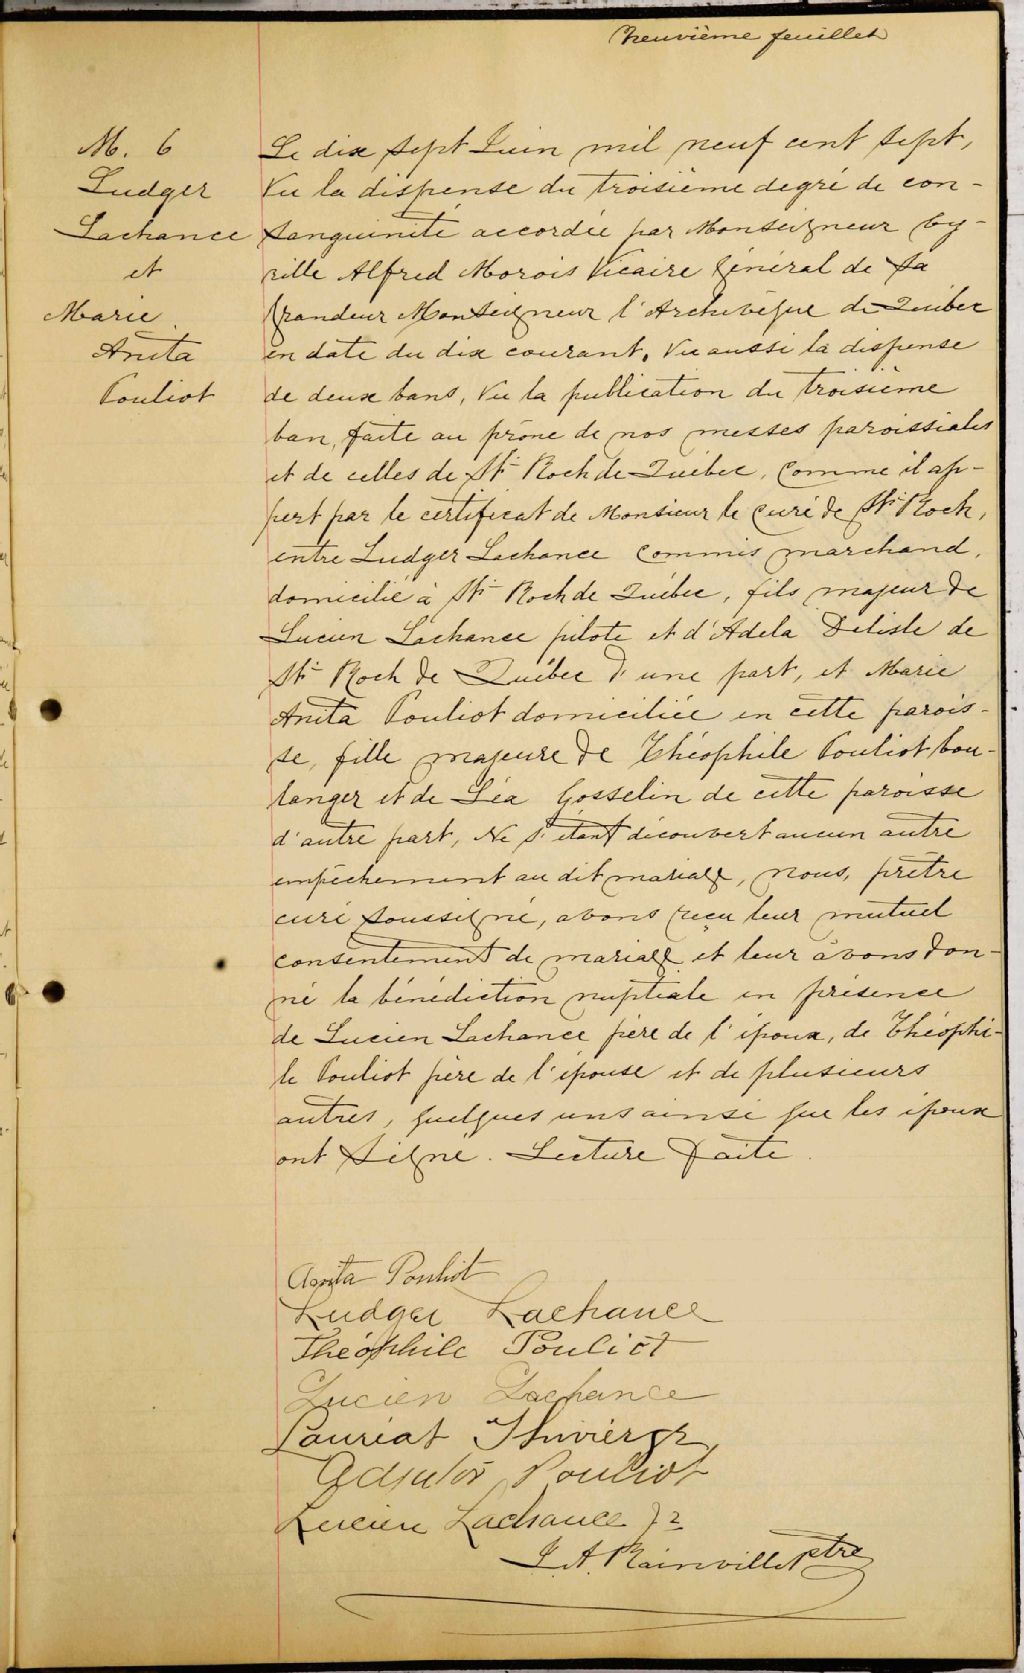 Neuvième feuillet
M. 6
Ludger
Lachance
et
Marie
Anita
Pouliot
Le dix sept Juin mil neuf cent sept,
Vu la dispense du troisième degré de con-
sanguinité accordée par Monseigneur Cy-
rille Alfred Marois Vicaire Général de Sa
Grandeur Monseigneur l'Archevêque de Québec
en date du dix courant, Vu aussi la dispense
de deux bans, Vu la publication du troisième
ban, faite au prône de nos messes paroissiales
et de celles de St Roch de Québec, comme il ap-
pert par le certificat de Monsieur le Curé de St Roch,
entre Ludger Lachance commis marchand,
domicilié à St Roch de Québec, fils majeur de
Lucien Lachance pilote et d'Adela Delisle de
St Roch de Québec d'une part, et Marie
Anita Pouliot domiciliée en cette parois-
se, fille majeure de Théophile Pouliot bou-
langer et de Léa Gosselin de cette paroisse
d'autre part, Ne s'étant découvert aucun autre
empêchement au dit mariage, nous, prêtre
curé soussigné, avons reçu leur mutuel
consentement de mariage et leur avons don-
né la bénédiction nuptiale en présence
de Lucien Lachance père de l'époux, de Théophi-
le Pouliot père de l'épouse et de plusieurs
autres, quelques uns ainsi que les époux
ont signé. Lecture faite.
Anita Pouliot
Ludger Lachance
Théophile Pouliot
Lucien Lachance
Lauréat Thivierge
Adjutor Pouliot
Lucien Lachance Jr
J. A. Rainville Ptre